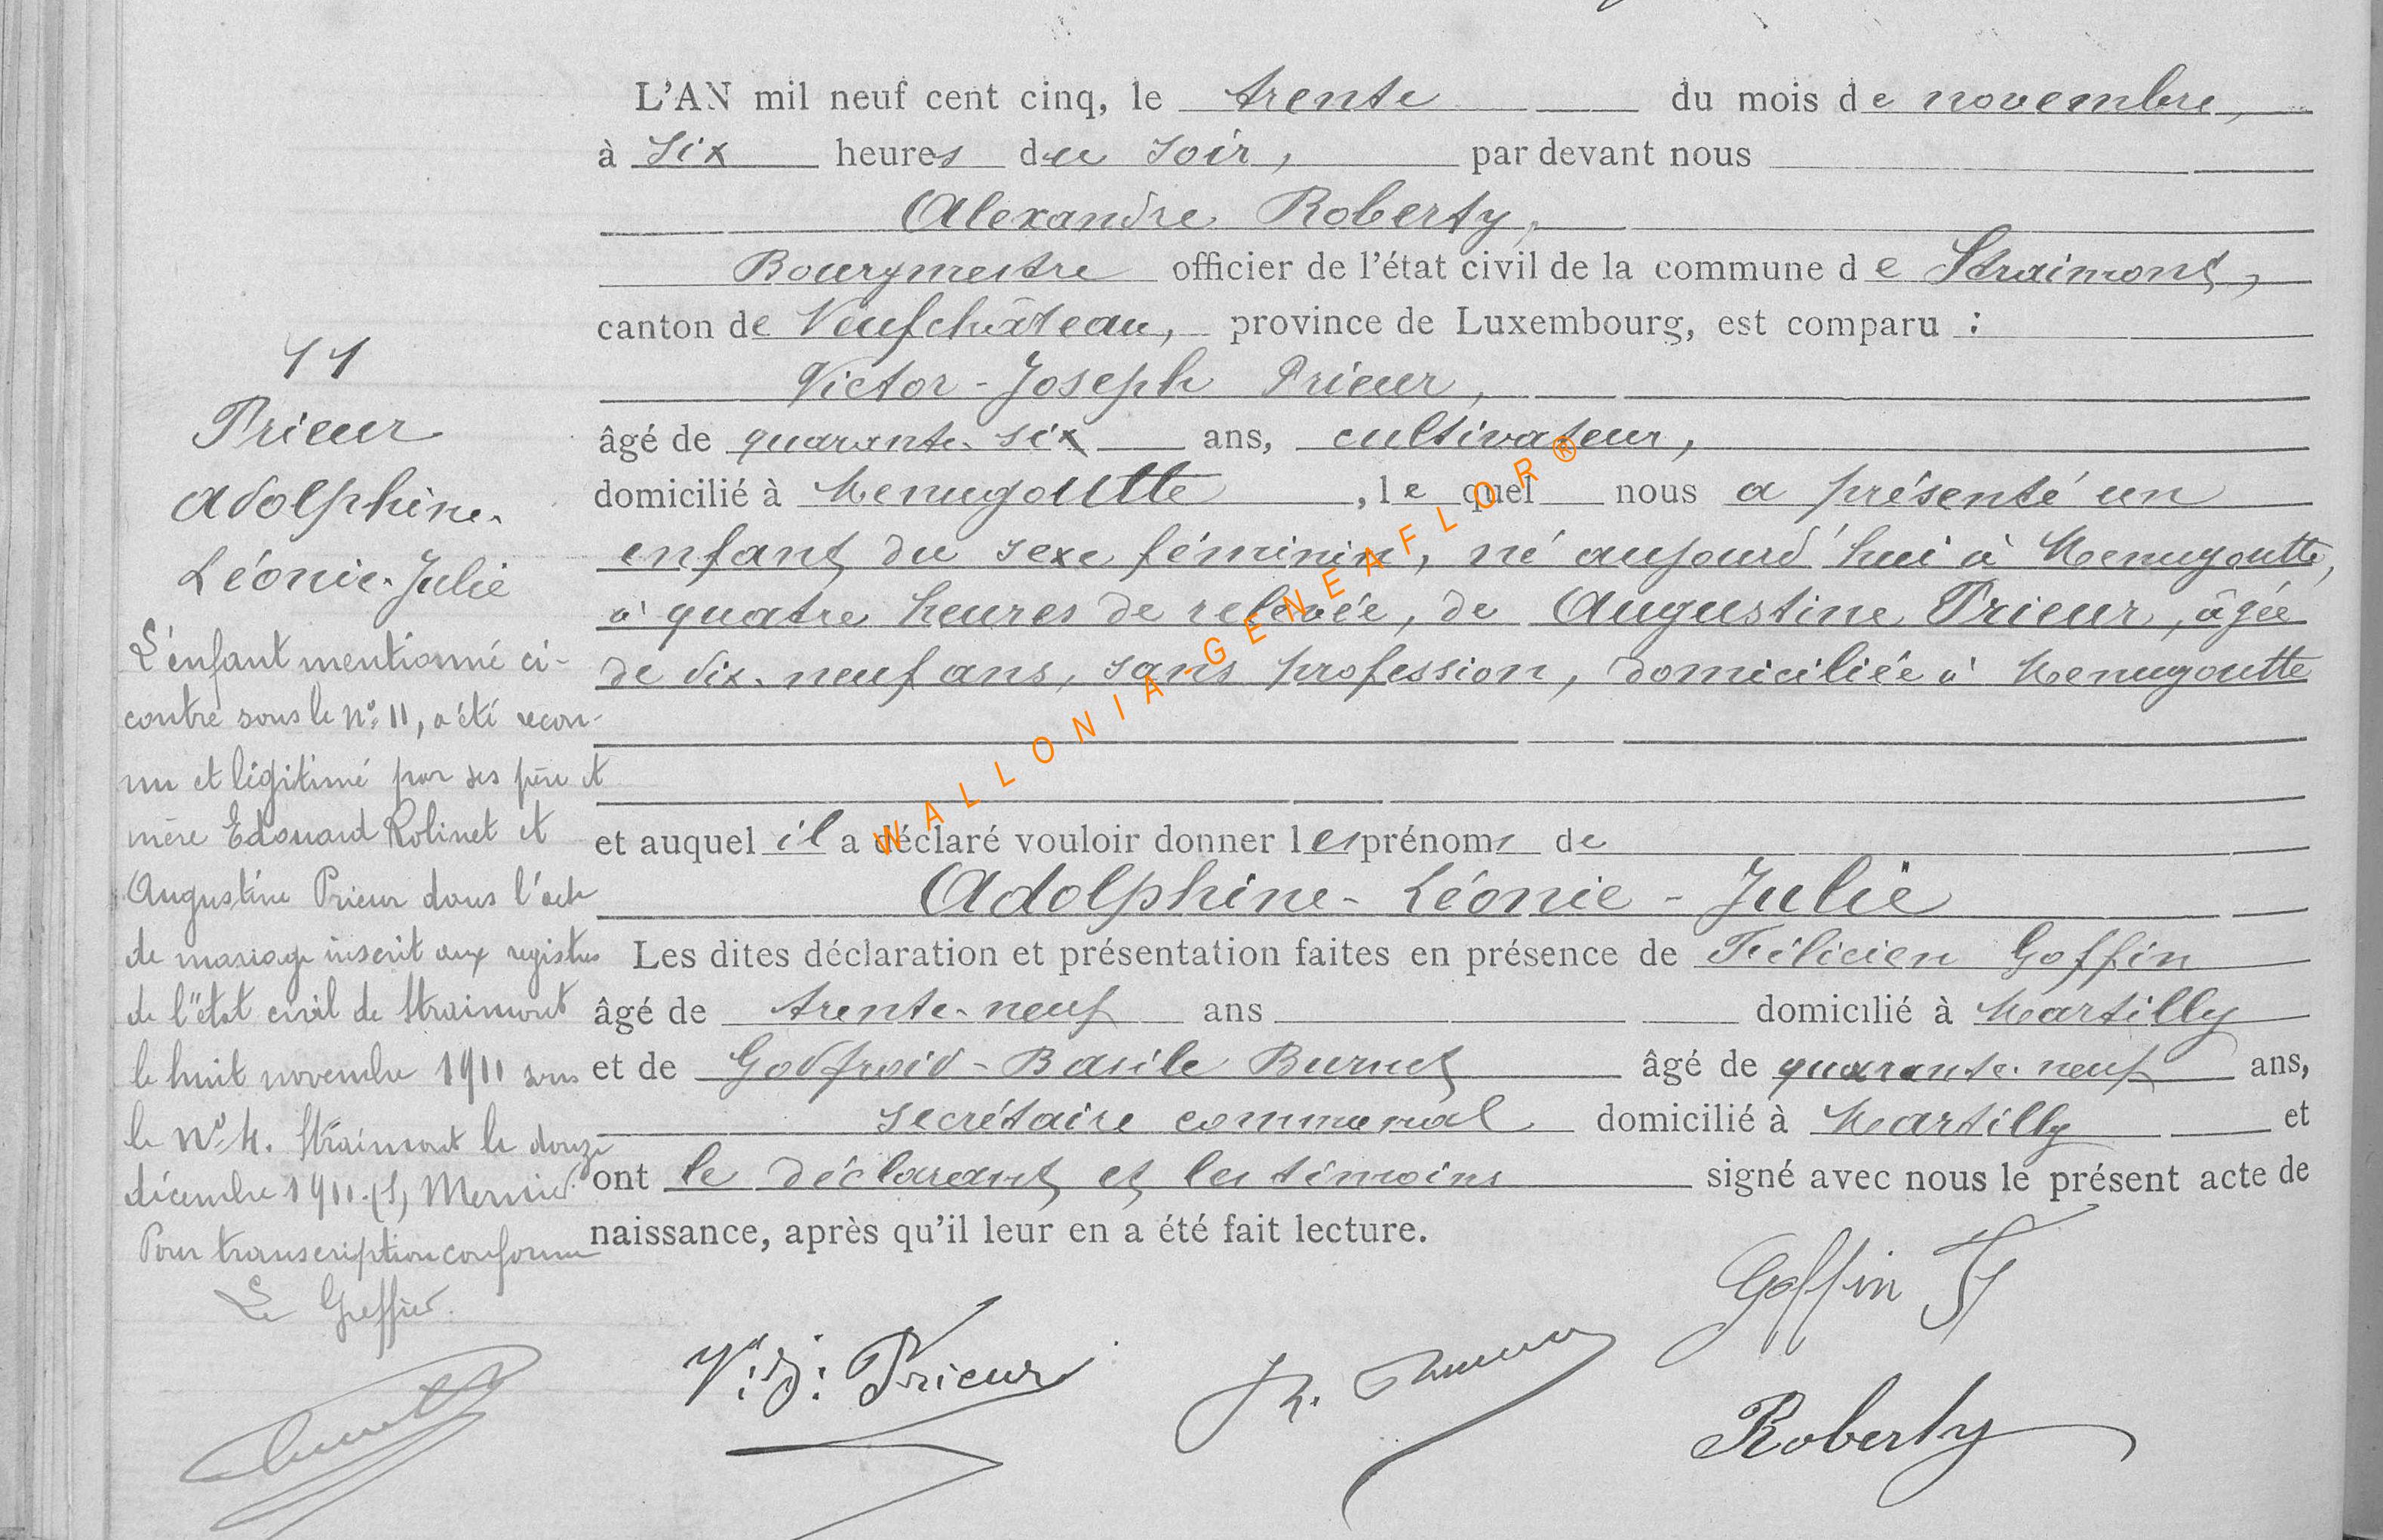 11
Prieur
Adolphine-
Léonie-Julie
L'enfant mentionné ci-
contre sous le No 11, a été recon-
nu et légitimé par ses père et
mère Edouard Robinet et
Augustine Prieur dans l'acte
de mariage inscrit aux registres
de l'état civil de Straimont
le huit novembre 1911 sous
le No 4. Straimont le douze
décembre 1911. (s)
Pour transcription conforme
Le Greffier.
L'AN mil neuf cent cinq, le trente du mois de novembre,
à six heures du soir, par devant nous
Alexandre Roberty,
Bourgmestre officier de l'état civil de la commune de Straimont,
canton de Neufchâteau, province de Luxembourg, est comparu :
Victor-Joseph Prieur,
âgé de quarante-six ans, cultivateur,
domicilié à Menugoutte, lequel nous a présenté un
enfant du sexe féminin, né aujourd'hui à Menugoutte,
à quatre heures de relevée, de Augustine Prieur, âgée
de dix-neuf ans, sans profession, domiciliée à Menugoutte
et auquel il a déclaré vouloir donner les prénoms de
Adolphine-Léonie-Julie
Les dites déclaration et présentation faites en présence de Félicien Goffin
âgé de trente-neuf ans domicilié à Martilly
et de Godfroid-Basile Burnet âgé de quarante-neuf ans,
secrétaire communal domicilié à Martilly et
ont le déclarant et les témoins signé avec nous le présent acte de
naissance, après qu'il leur en a été fait lecture.
Goffin F
V: J: Prieur
Roberty
WALLONIA GENEAFLOR®